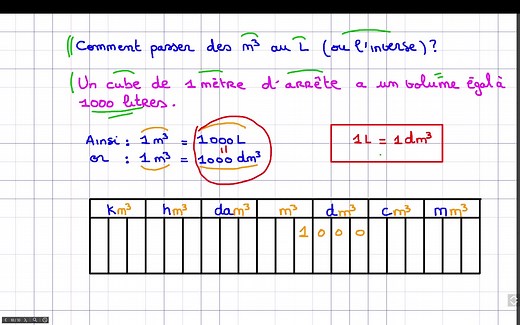 Comment passer des m³ au L (ou l'inverse)?
Un cube de 1 mètre d'arrête a un volume égal à
1000 litres.
Ainsi : 1 m³ = 1000 L
or : 1 m³ = 1000 dm³
1L = 1dm³
km³ hm³ dam³ m³ dm³ cm³ mm³
1 0 0 0